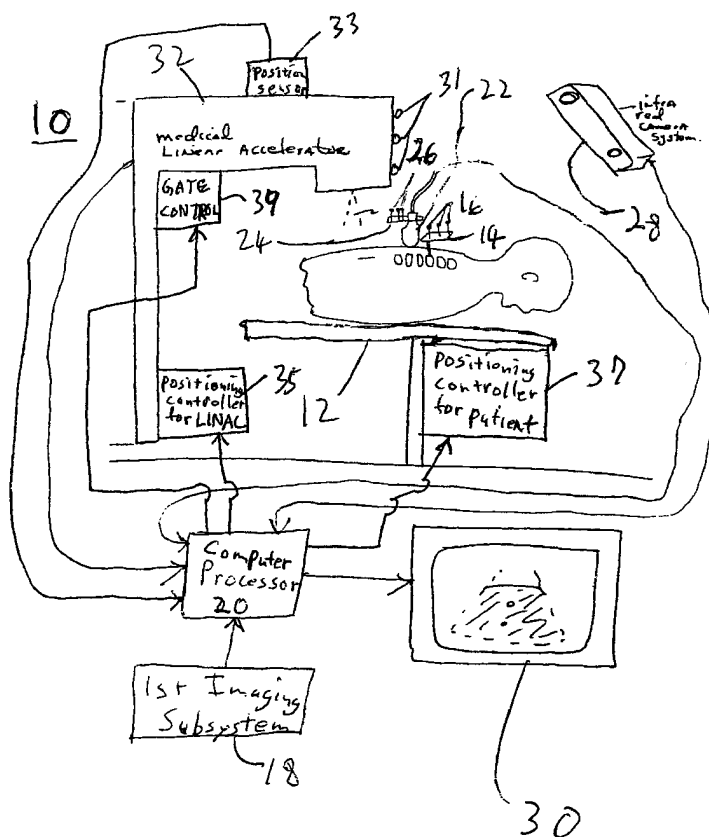 33
32
Position
sensor
31
22
infra
red
camera
system.
10
medical
Linear Accelerator
26
GATE
CONTROL
39
16
14
24
28
Positioning
controller
for LINAC
35
12
Positioning
controller
for patient
37
Computer
Processor
20
1st Imaging
Subsystem
18
30